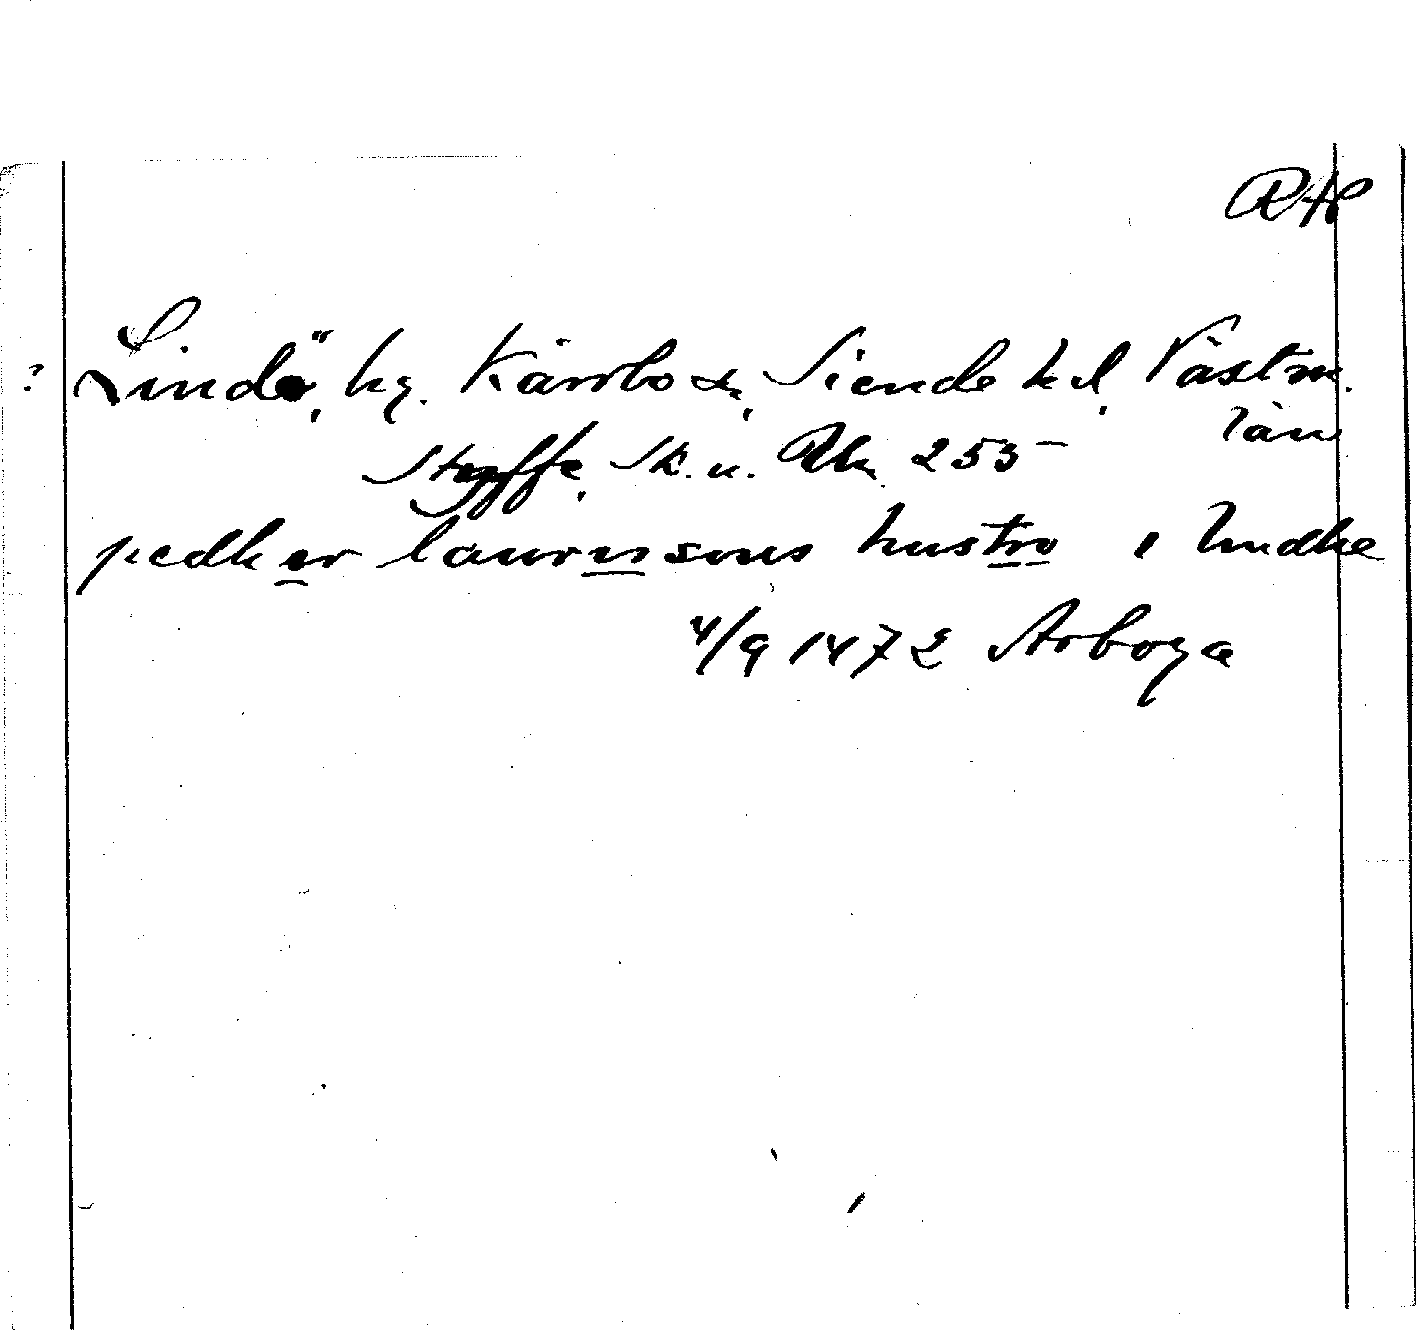 RAP
? Lindö, hg. Kärrbo sn, Siende hd, Västm.
län
Styffe, Sk. u. Un. 255
pedher laurissons hustro i lindhe
4/9 1472 Arboga